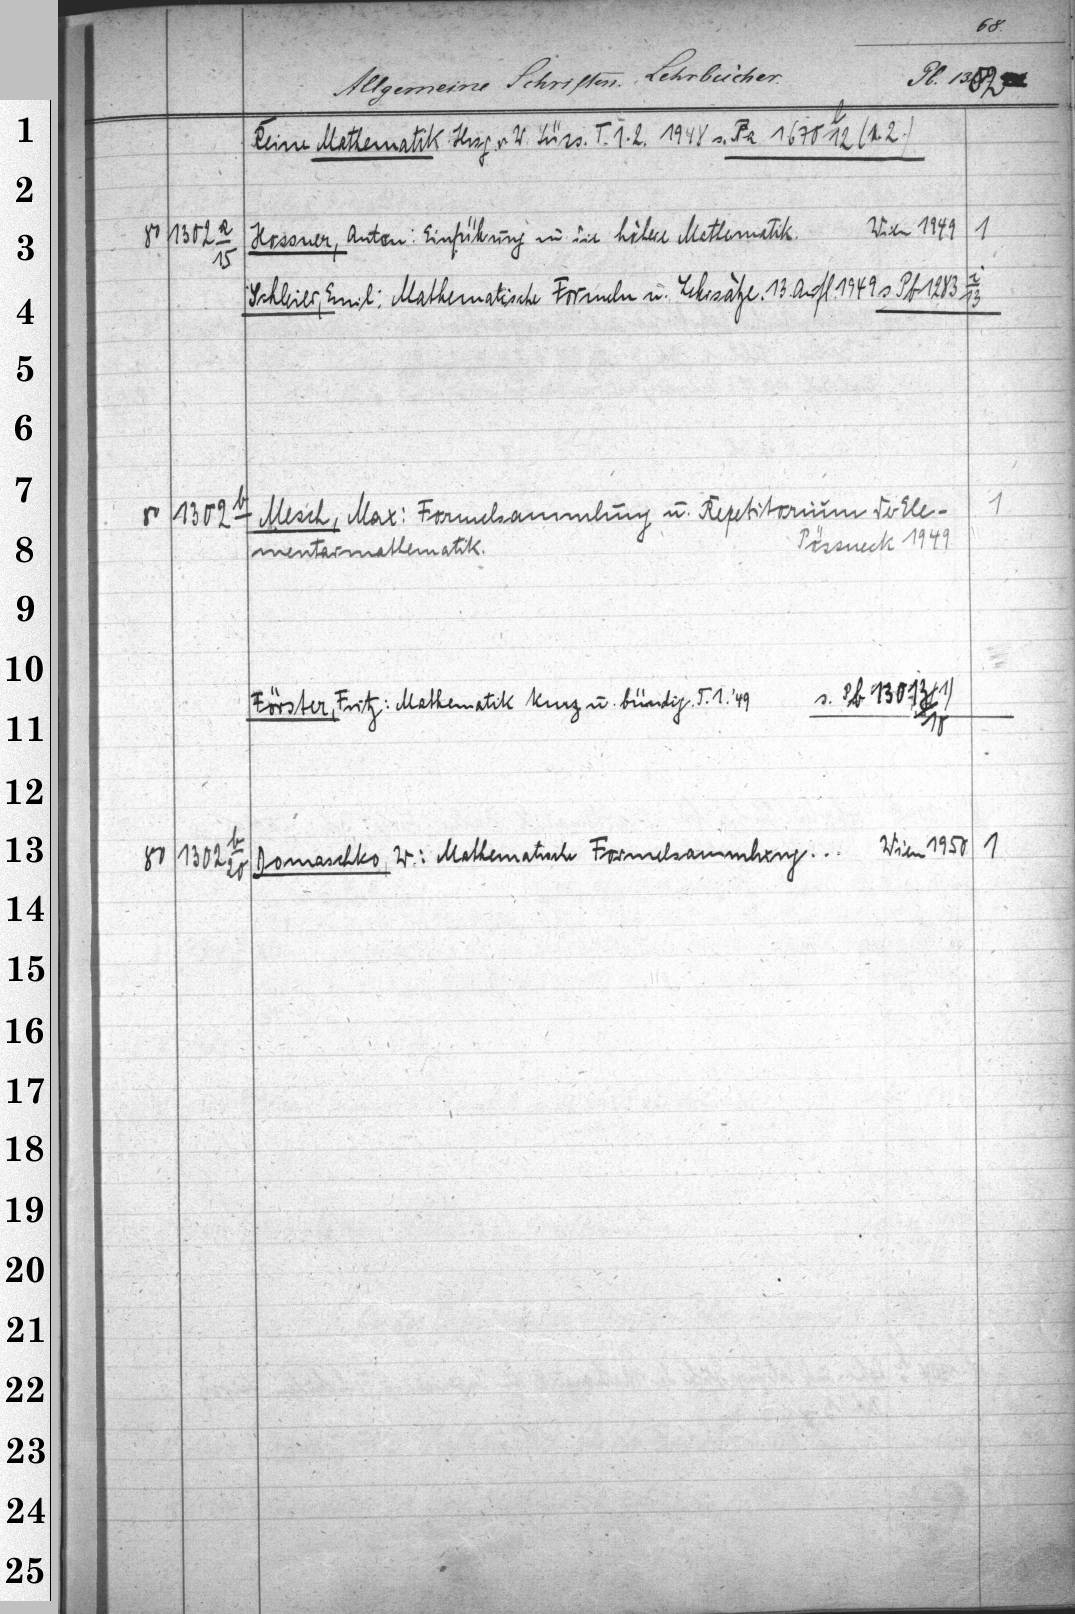 68.
Allgemeine Schriften. Lehrbücher. Pb. 1302
Reine Mathematik. Hrsg. v. W. Süss. T. 1.2. 1948 s. Pa 1670 b/12 (1.2.)
8º 1302 a/15 Hossner, Anton: Einführung in die höhere Mathematik. Wien 1949 1
Schleier, Emil: Mathematische Formeln u. Lehrsätze. 13. Aufl. 1949 s Pb 1283 i/13
8º 1302 b Mesch, Max: Formelsammlung u. Repetitorium der Ele- 1
mentarmathematik. Pössneck 1949
Förster, Fritz: Mathematik kurz u. bündig. T. 1. '49 s. Pb 1301 (1)
8º 1302 b/20 Domaschko, W.: Mathematische Formelsammlung... Wien 1950 1
1
2
3
4
5
6
7
8
9
10
11
12
13
14
15
16
17
18
19
20
21
22
23
24
25